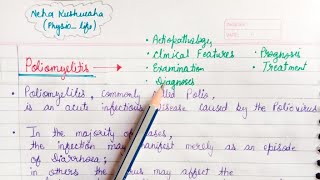 Neha Kushwaha
(Physio_life)
Poliomyelitis →
• Aetiopathology
• Clinical Features
• Examination
• Diagnosis
• Prognosis
• Treatment
• Poliomyelitis, commonly called Polio,
is an acute infectious disease caused by the Poliovirus
• In the majority of cases,
the infection may manifest merely as an episode
of Diarrhoea;
in others the virus may affect the